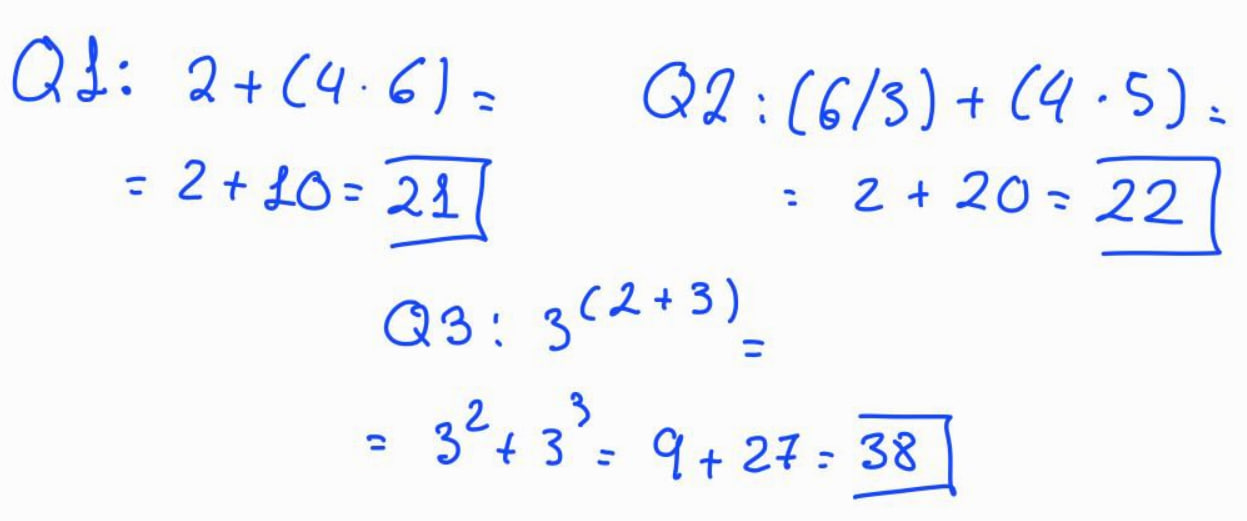 Q1: 2+(4·6)=
= 2+10= 21
Q2:(6/3)+(4·5)=
= 2+20= 22
Q3: 3^(2+3)=
= 3²+3³= 9+27= 38